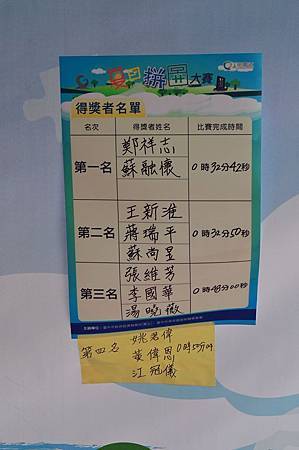 夏日拼圖大賽
得獎者名單
名次 得獎者姓名 比賽完成時間
第一名 鄭祥志 0時32分42秒
蘇融懷
第二名 王新淮 0時32分50秒
蔣瑞平
蘇尚昱
第三名 張維芳 0時48分00秒
李國華
湯婉薇
主辦單位：
第四名 姚若偉 0時50分04
黃偉恩
江冠儀